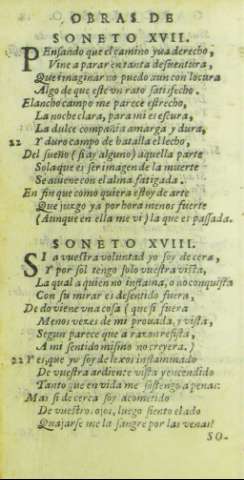 OBRAS DE
SONETO XVII.
PEnsando que el camino yua derecho,
Vine a parar en tanta desuentura,
Que imaginar no puedo aun con locura
Algo de que este vn rato satisfecho.
El ancho campo me parece estrecho,
La noche clara, para mi es escura,
La dulce compañia amarga y dura,
22 Y duro campo de batalla el lecho,
Del sueño (si ay alguno) aquella parte
Sola que es ser imagen de la muerte
Se auiene con el alma fatigada.
En fin que como quiera estoy de arte
Que juzgo ya por hora menos fuerte
(Aunque en ella me vi) la que es passada.
SONETO XVIII.
SI a vuestra voluntad yo soy de cera,
Y por sol tengo solo vuestra vista,
La qual a quien no inflama, o no conquista
Con su mirar es de sentido fuera,
De do viene vna cosa (que si fuera
Menos vezes de mi prouada, y vista,
Segun parece que a razon resista,
A mi sentido mismo no creyera.)
22 Y es, que yo soy de lexos inflamado
De vuestra ardiente vista y encendido
Tanto que en vida me sostengo a penas:
Mas si de cerca soy acometido
De vuestros ojos, luego siento elado
Quajarse me la sangre por las venas
SO.